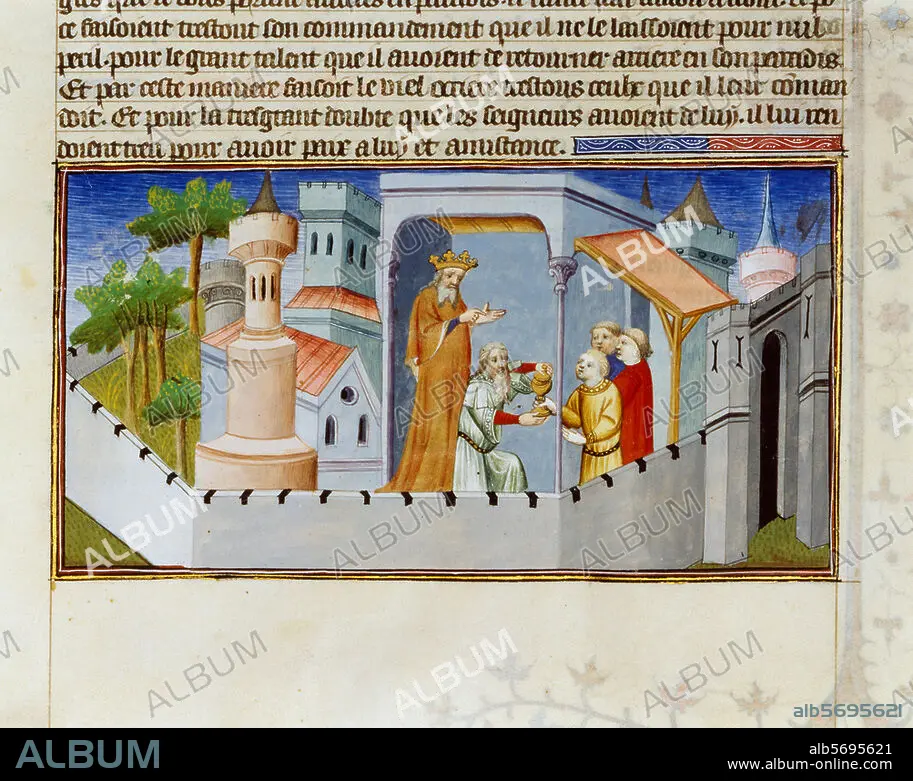 ce faisoient trestout son commandement que il ne le laissoient pour nul
peril. pour le grant talent que il avoient de retourner arriere en son paradis.
Et par ceste maniere faisoit le viel occirre trestous ceulx que il leur comman
doit. Et pour la tresgrant doubte que les seigneurs avoient de luy. il lui ren
doient treu pour avoir paix a luy et amistance.
ALBUM
alb5695621
ALBUM
alb5695621
www.album-online.com